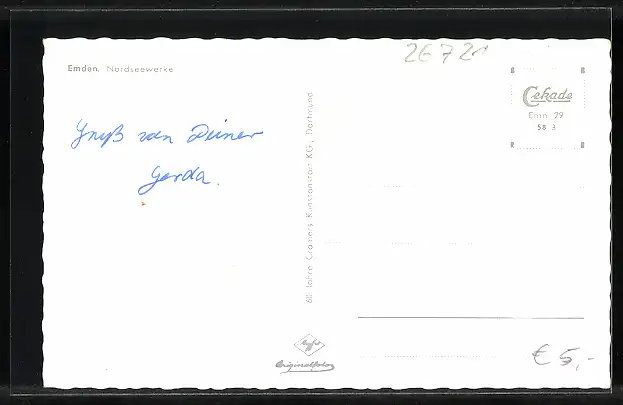 26721
Emden. Nordseewerke
Cekade
Emn 29
58 3
Gruß von Deiner
Gerda.
60 Jahre Cramers Kunstanstalt KG, Dortmund
Agfa
Originalfoto
€ 5,-